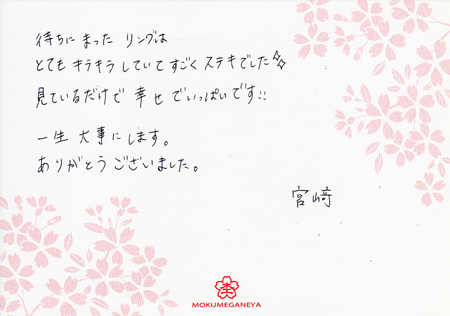 待ちにまった リングは
とても キラキラ していて すごく ステキでした☆☆
見ているだけで 幸せ でいっぱいです!!
一生 大事に します。
ありがとう ございました。
宮﨑
杢
MOKUMEGANEYA